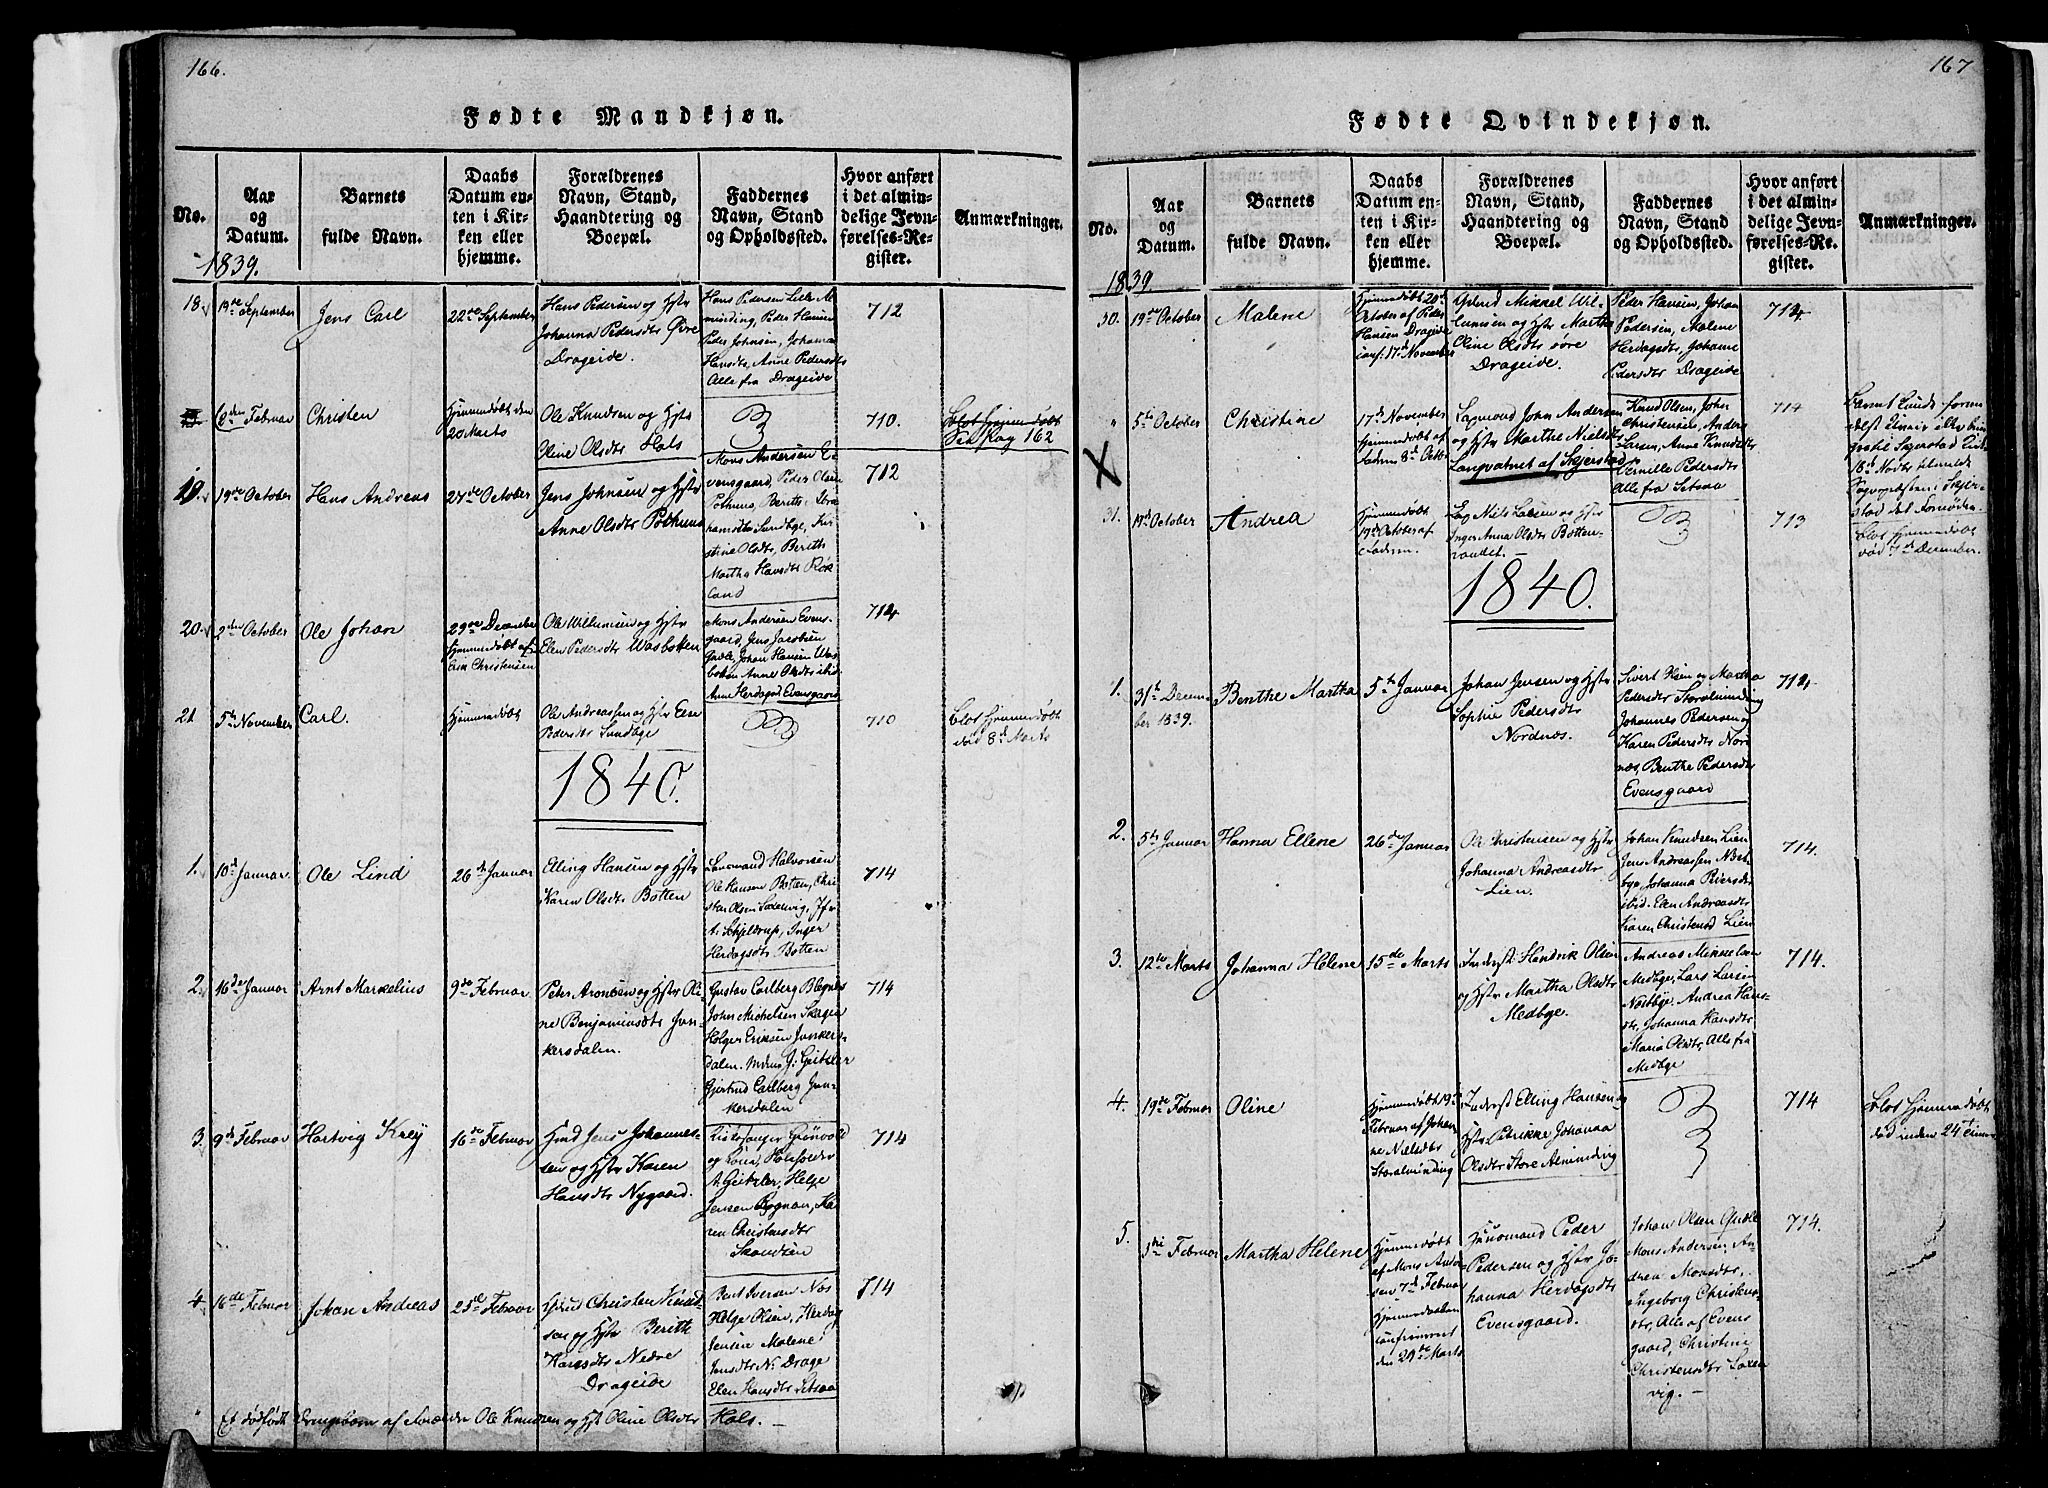 166.
Fødte Mandkjøn.
No.
Aar
og
Datum.
Barnets
fulde Navn.
Daabs
Datum en-
ten i Kir-
ken eller
hjemme.
Forældrenes
Navn, Stand,
Haandtering og
Boepæl.
Faddernes
Navn, Stand
og Opholdssted.
Hvor anført
i det almin-
delige Jevn-
førelses-Re-
gister.
Anmærkninger.
1839.
18.
19de September
Jens Carl
22de September
Hans Pedersen og Hstr
Johanna Pedersdtr Øvre
Drageide.
Hans Pedersen Lille Al-
minding, Peder Hansen
Peder Johnsen, Johanna
Hansdtr, Anne Pedersdtr
Alle fra Drageide
712
6den Februar
Christen
Hjemmedøbt den
20 Marts
Ole Knudsen og Hstr
Oline Olsdtr Hals
710.
Blot hjemmedøbt
See Pag 162
19.
19de October
Hans Andreas
27de October
Jens Johnsen og Hstr
Anne Olsdtr Pothuus
Mons Andersen E-
vensgaard, Peder Olsen
Pothuus, Berith
Sundbye,
Olsdtr, Berith
Martha Hansdtr Rok-
land
712
20.
2den October
Ole Johan
29de December
Hjemmedøbt af
Christensen
Ole Willumsen og Hstr
Elen Pedersdtr Wasbotten
Mons Andersen Evens-
gaard, Jens Jacobsen
Johan Hansen Was-
botten Anne Olsdtr ibid
Anne Herdagsd Evensgaard
714
21
5te November
Carl.
Hjemmedøbt
Ole Andreassen og Hstr
Pedersdtr Sundbye
710
Blot hjemmedøbt
død 8de Marts
1840.
1.
10de Januar
Ole Lind
26de Januar
Elling Hansen og Hstr
Karen Olsdtr Botten
Halvorsen
Ole Hansen Botten, Chri-
sten Olsen Saxenvig, Jfr
A: Schjelderup, Inger
Herdagsdtr Botten
714
2.
16de Januar
Arnt Markelius
9de Februar
Peter Aronsen og Hstr Oli-
ne Benjaminsdtr Jun-
kersdalen.
Gustav Carlberg
John Michelsen
Holger Eriksen Junkers-
dalen.
Gjertrud Carlberg Jun-
kersdalen
714
3.
9de Februar
Hartvig Krey
16de Februar
Hmd Jens Johannes-
sen og Hstr Karen
Hansdtr Nygaard.
Grønvold
og
A Geitzler, Helge
Jensen Rognan, Ka-
ren Christensdtr
714
4.
16de Februar
Johan Andreas
25de Februar
Hmd Christen Knud-
sen og Hstr Berith
Hansdtr Nedre
Drageide
Iversen
Helge Olsen, Herdag
Jensen Malene
Jensdtr N. Drage
Elen Hansdtr Setsaa
714
Et dødfødt Drengebarn af Forældre Ole Knudsen og Hst Oline Olsdtr Hals. —
167
Fødte Qvindekjøn.
No.
Aar
og
Datum.
Barnets
fulde Navn.
Daabs
Datum en-
ten i Kir-
ken eller
hjemme.
Forældrenes
Navn, Stand,
Haandtering og
Boepæl.
Faddernes
Navn, Stand
og Opholdssted.
Hvor anført
i det almin-
delige Jevn-
førelses-Re-
gister.
Anmærkninger.
1839.
30.
19de October
Malene
Hjemmedøbt 20de
October af Peder
Hansen Drageide
conf: 17de November
Mikkel Wil-
lumsen og Hstr Martha
Oline Olsdtr øvre
Drageide.
Peder Hansen, Johan
Pedersen, Malene
Herdagsdtr, Johanne
Pedersdtr Drageide
714
5te October
Christine
17de November
Hjemmedøbt af
Faderen 8de Octbr
Lapmand John Andersen
og Hstr Marthe Nielsdtr
Langvatnet af Skjerstad
Knud Olsen, John
Christensen, Anders
Larsen, Anne Knudsdtr
Pernille Pedersdtr
Alle fra Setsaa
714
31.
19de October
Andrea
Hjemmedøbt
19de October af
Faderen.
Lap Niels Larsen og Hstr
Inger Anna Olsdtr Botten-
vandet. —
713
Blot hjemmedøbt
død 7de December.
1840.
1.
31te Decem-
ber 1839.
Benthe Martha
5te Januar
Johan Jensen og Hstr
Sophie Pedersdtr
Nordnæs.
Sivert Olsen og Martha
Pedersdtr Storalminding
Johannes Pedersen og
Karen Pedersdtr Nord-
næs, Benthe Pedersdtr
Evensgaard
714
2.
5te Januar
Hanna Ellene
26de Januar
Ole Christensen og Hstr
Johanna Andreasdtr
Lien.
Johan Knudsen Lien
Jens Andreassen Nord-
bye, Johanna Pedersdtr
ibid. Elen Andreasdtr
Karen Christensd Lien
714.
3.
12te Marts
Johanna Helene
15de Marts
Inderst Hendrik Olsen
og Hstr Martha Olsdtr
Medbye.
Andreas Mikkelsen
Medbye, Lars Larsen
Nordbye, Andrea Hans-
dtr, Johanna Hansdtr
Maria Olsdtr, Alle fra
Medbye
714.
4.
19de Februar
Oline
Hjemmedøbt 19de
Februar af Johan-
ne Nielsdtr
Storalminding
Inderst Elling Hansen og
Hstr Petrikke Johanna
Olsdtr Store Alminding
714
Blot hjemmedøbt
død inden 24 Timer
5.
1ste Februar
Martha Helene
Hjemmedøbt
af Mons Ander-
sen 7de Februar
Hjemmedaaben
confirmeret
den 29de Marts
Huusmand Peder
Pedersen og Hstr Jo-
hanna Herdagsdtr
Evensgaard.
Johan Olsen
Mons Andersen, An-
drea Monsdtr,
Ingeborg Christens-
dtr, Alle af Evens
gaard, Christine
Christensdtr Saxen
vig. —
714.